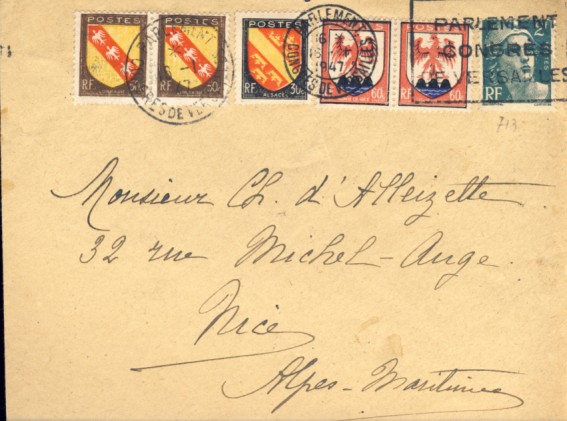 POSTES POSTES POSTES
RF 50c RF 50c RF ALSACE 30c RF 60c RF 60c RF 2
PARLEMENT
CONGRES DE VERSAILLES
16
1947
PARLEMENT
CONGRES
DE VERSAILLES
713
Monsieur Ch. d'Alleizette
32 rue Michel-Ange.
Nice
Alpes-Maritimes